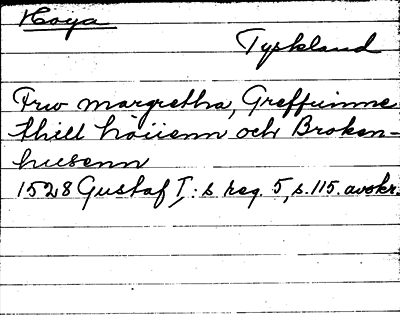 Hoya
Tyskland
Frw margretha, Greffuinne
thill höiienn och Broken-
husenn
1528 Gustaf I:s reg. 5, s. 115. avskr.